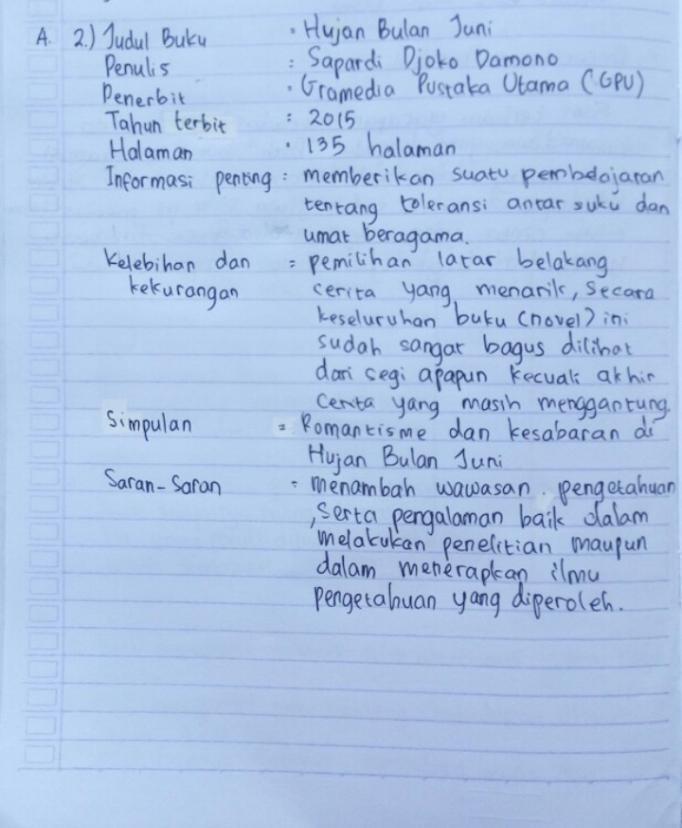 A. 2.) Judul Buku : Hujan Bulan Juni
Penulis : Sapardi Djoko Damono
Penerbit : Gramedia Pustaka Utama (GPU)
Tahun terbit : 2015
Halaman : 135 halaman
Informasi penting : memberikan suatu pembelajaran
tentang toleransi antar suku dan
umat beragama.
Kelebihan dan = pemilihan latar belakang
kekurangan cerita yang menarik, Secara
keseluruhan buku (novel) ini
sudah sangat bagus dilihat
dari segi apapun kecuali akhir
cerita yang masih menggantung.
Simpulan = Romantisme dan kesabaran di
Hujan Bulan Juni
Saran-Saran : menambah wawasan. pengetahuan
, serta pengalaman baik dalam
melakukan penelitian maupun
dalam menerapkan ilmu
pengetahuan yang diperoleh.